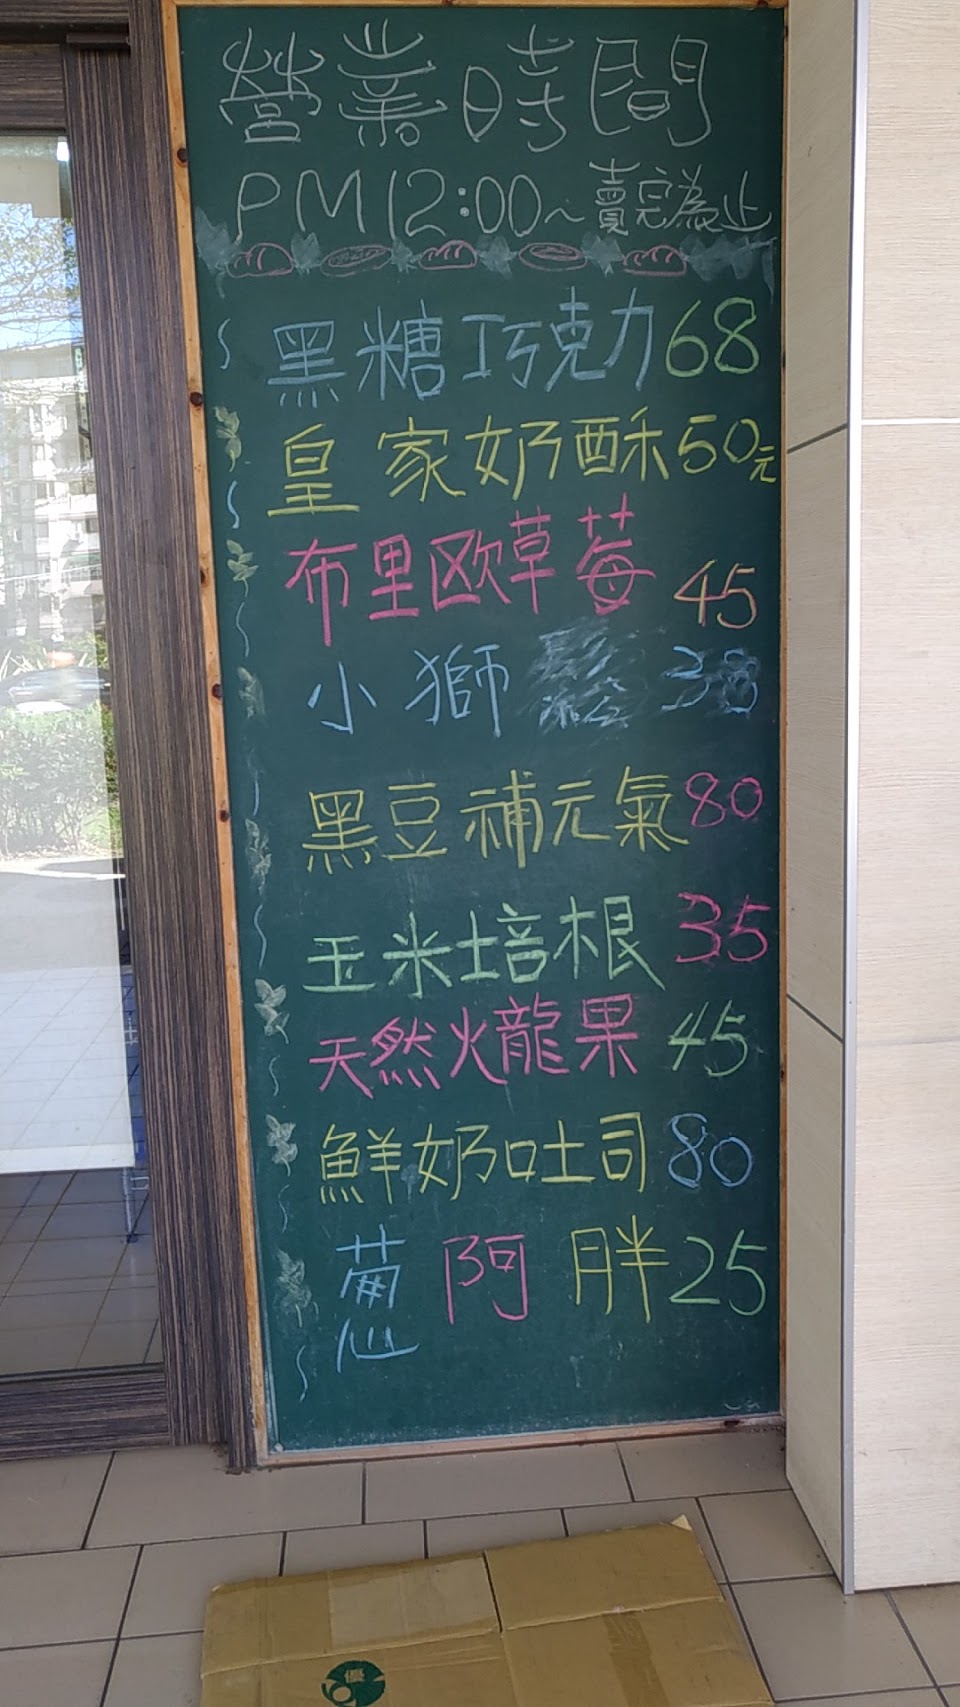 營業時間
PM12:00~賣完為止
黑糖巧克力68
皇家奶酥50元
布里欧草莓45
小獅 38
黑豆補元氣80
玉米培根35
天然火龍果45
鮮奶吐司80
阿胖25
優